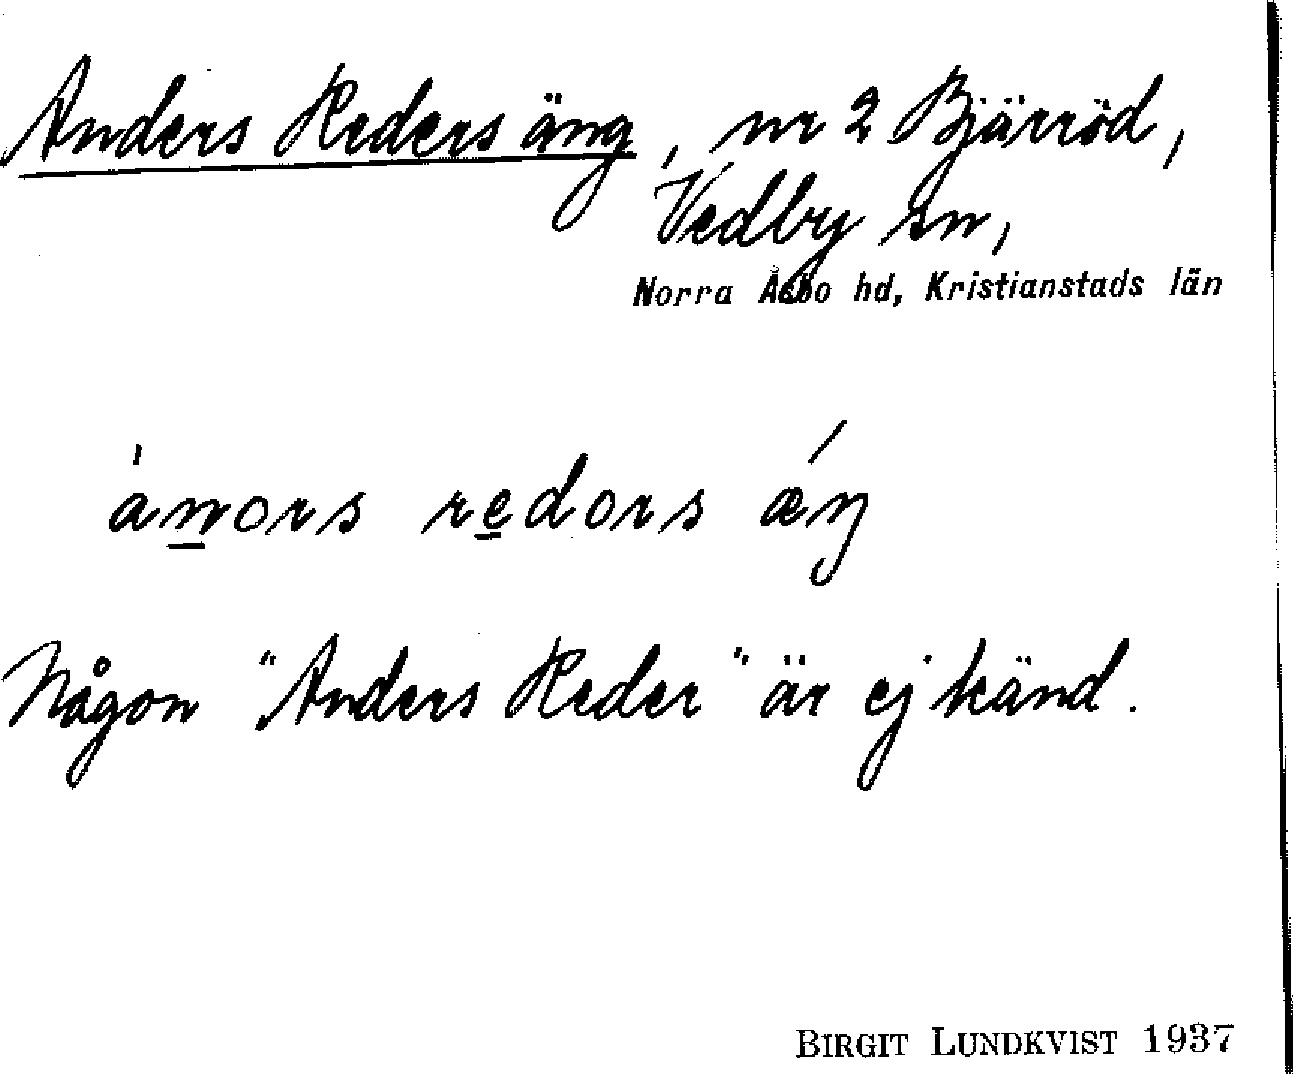 Anders Reders äng, nr 2 Bjärröd,
Vedby sn,
Norra Åsbo hd, Kristianstads län
ánors redors ǽŋ
Någon "Anders Reder" är ej känd.
BIRGIT LUNDKVIST 1937